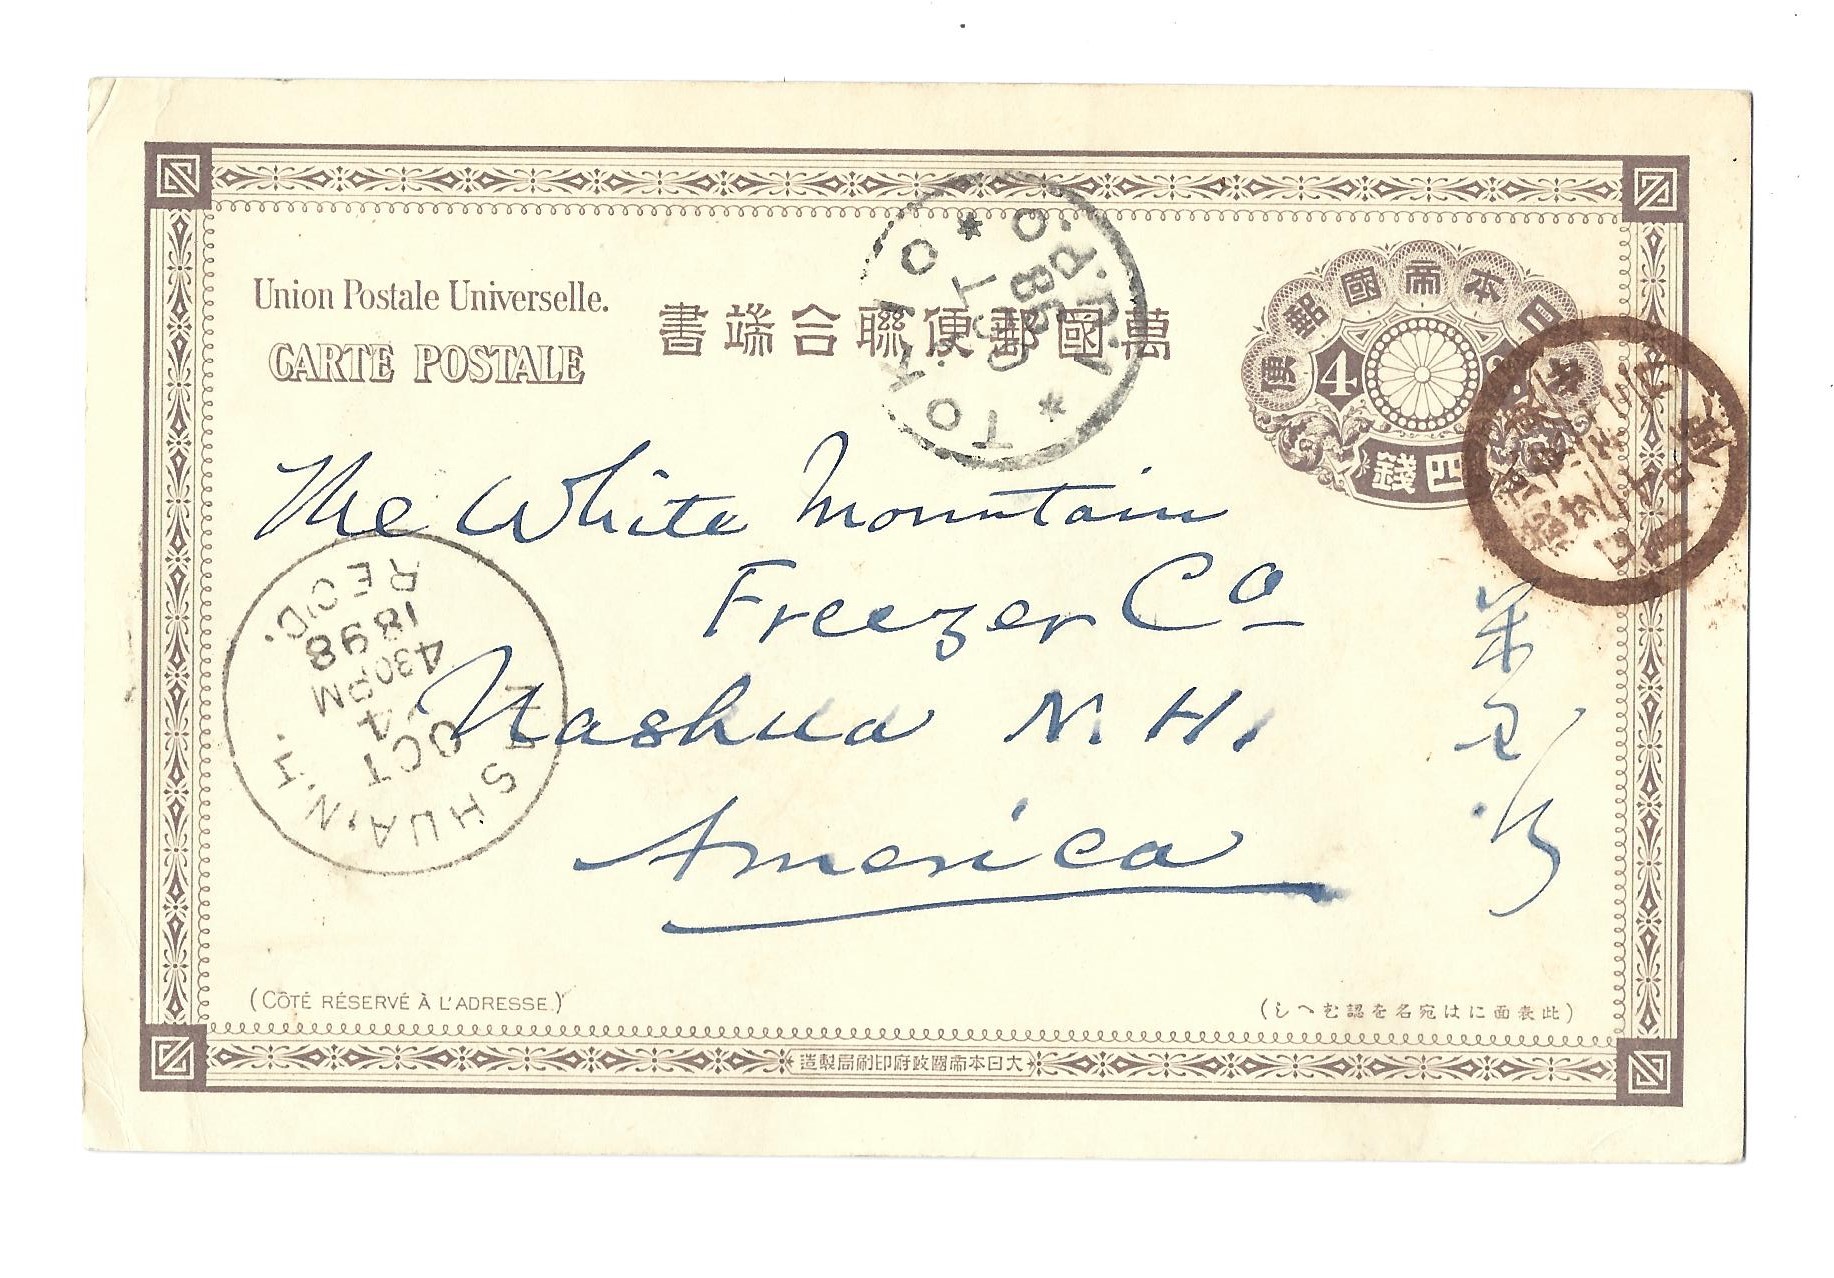 Union Postale Universelle.
CARTE POSTALE
書端合聯便郵國萬
大日本帝國郵便
4
四錢
TOKIO
The White Mountain
Freezer Co
Nashua N. H.
America
NASHUA, N.H.
OCT
4
430PM
1898
REC'D.
(CÔTÉ RÉSERVÉ À L'ADRESSE.)
(しへむ認を名宛はに面表此)
造製局刷印府政國帝本日大